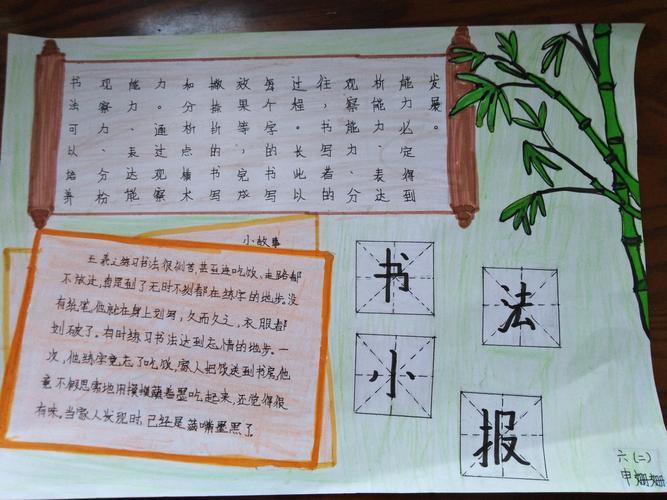 书法可以培养
现察力、分析
能力、表达能
力。通过观察
和分析点横术
撇捺折的书写
放果等，完成
每个字的书写
过程。长此以
往，书写者的
观察能力、分
析能力、表达
能力必定得到
发展。
小故事
王羲之练习书法很刻苦，甚至连吃饭、走路都
不放过，真是到了无时不刻都在练字的地步。没
有纸笔，他就在身上划写，久而久之，衣服都
划破了。有时练习书法达到忘情的地步。一
次，他练字竟忘了吃饭，家人把饭送到书房，他
竟不假思索地用馍馍蘸着墨吃起来，还觉得很
有味。当家人发现时，已经是满嘴墨黑了。
书法
小报
六（二）
申姗姗